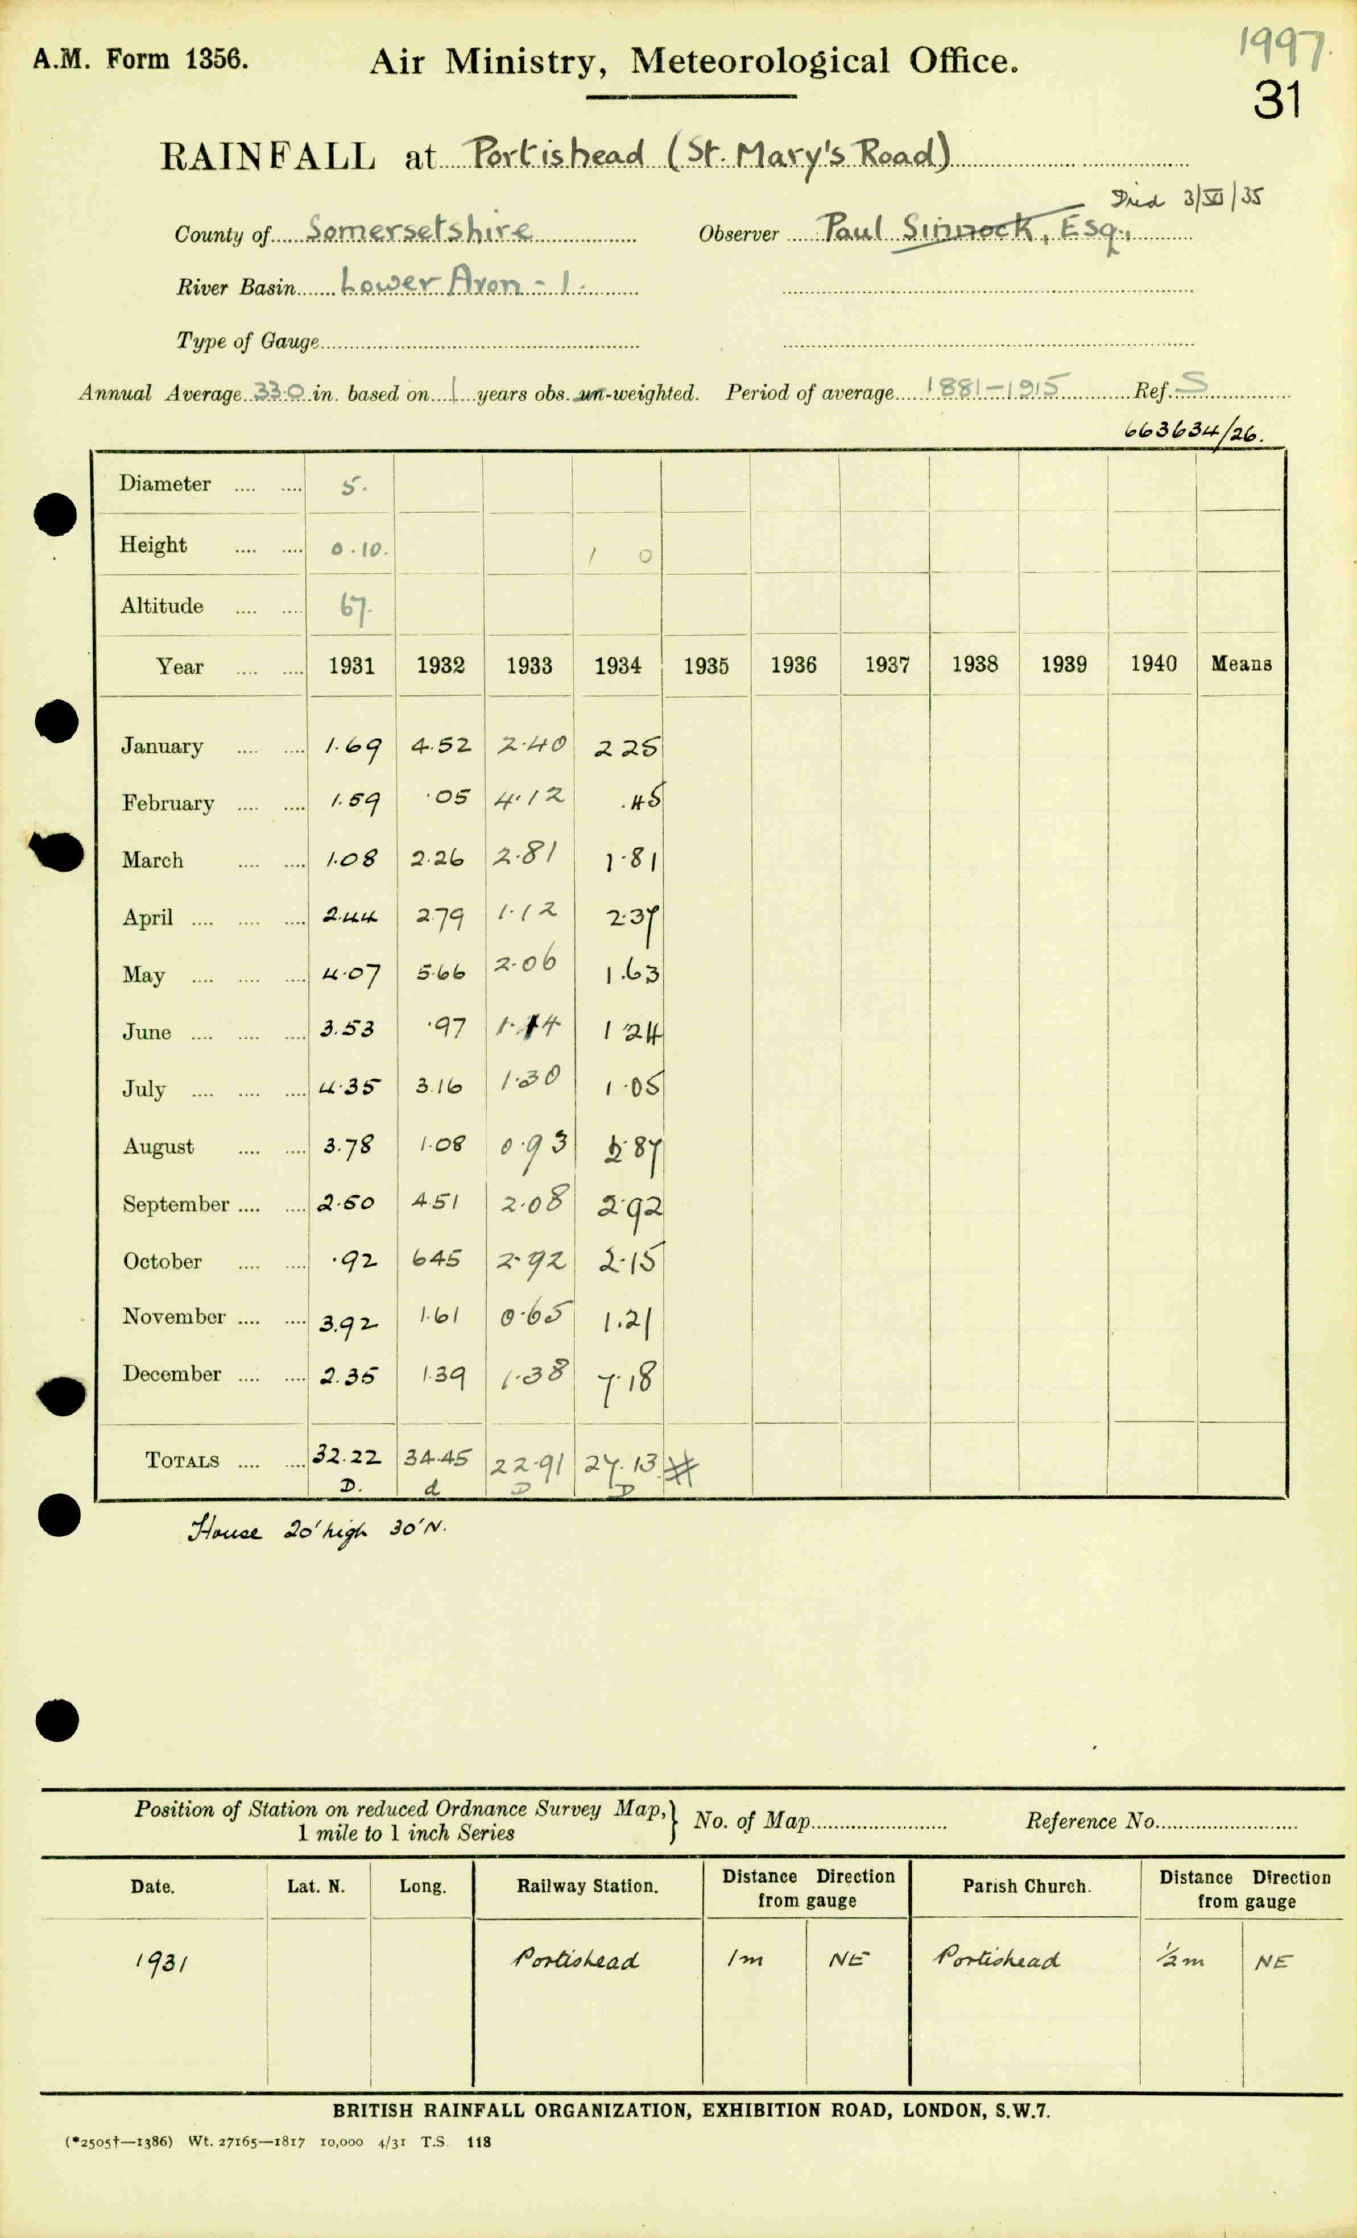 A.M. Form 1356.
Air Ministry, Meteorological Office.
1997.
31
RAINFALL at Portishead (St. Mary's Road)
Died
County of Somersetshire Observer Paul Sinnock, Esq.,
River Basin Lower Avon - 1.
Type of Gauge
Annual Average 33.0 in. based on 1 years obs. un-weighted. Period of average 1881-1915 Ref. S
663634/26.
Diameter 5.
Height 0.10. 1 0
Altitude 67.
Year 1931 1932 1933 1934 1935 1936 1937 1938 1939 1940 Means
January 1.69 4.52 2.40 2 25
February 1.59 .05 4.12 .45
March 1.08 2.26 2.81 1.81
April 2.44 2.79 1.12 2.37
May 4.07 5.66 2.06 1.63
June 3.53 .97 1.14 1 24
July 4.35 3.16 1.30 1.05
August 3.78 1.08 0.93 2.87
September 2.50 4.51 2.08 2.92
October .92 6.45 2.92 2.15
November 3.92 1.61 0.65 1.21
December 2.35 1.39 1.38 7.18
TOTALS 32.22 34.45 22.91 27.13 #
D. d D D
House 20' high 30' N.
Position of Station on reduced Ordnance Survey Map, } No. of Map Reference No.
1 mile to 1 inch Series
Date. Lat. N. Long. Railway Station. Distance Direction from gauge Parish Church. Distance Direction from gauge
1931 Portishead 1m NE Portishead ½m NE
BRITISH RAINFALL ORGANIZATION, EXHIBITION ROAD, LONDON, S.W.7.
(*2505†—1386) Wt. 27165—1817 10,000 4/31 T.S. 118